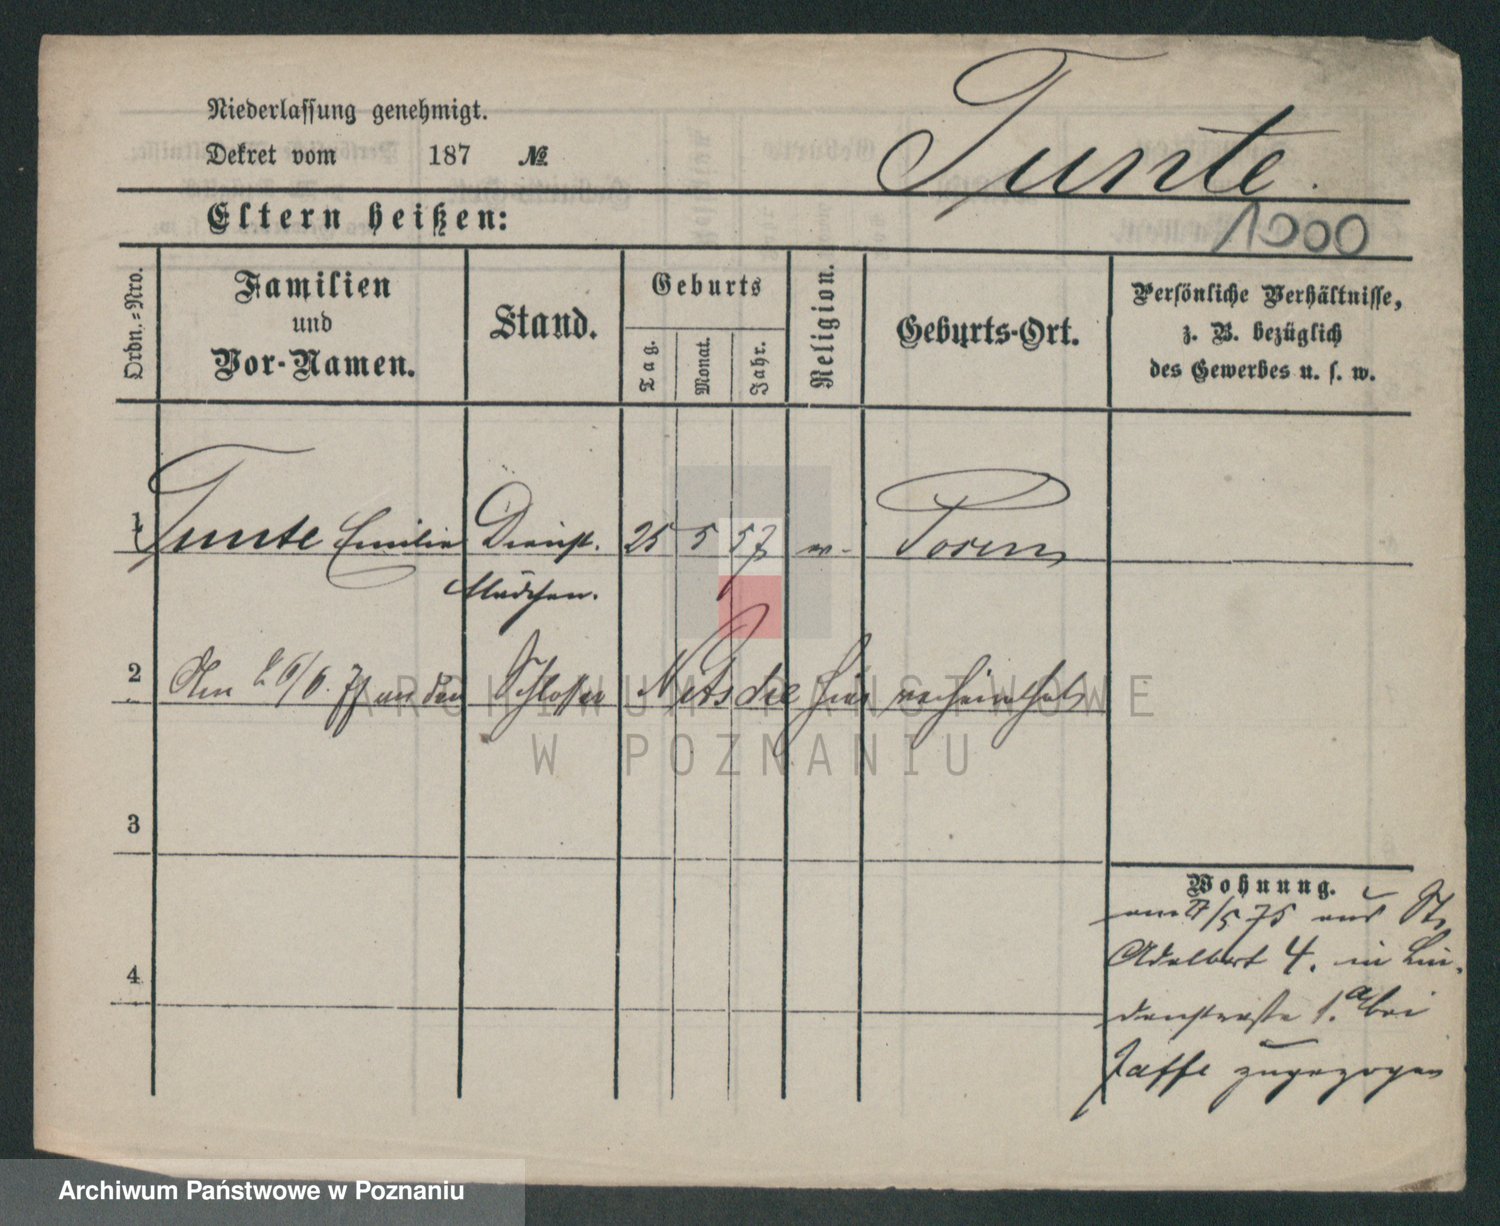 Niederlassung genehmigt.
Dekret vom 187 №
Tunte.
Eltern heißen:
1000
Ordn.-Nro.
Familien
und
Vor-Namen.
Stand.
Geburts
Tag.
Monat.
Jahr.
Religion.
Geburts-Ort.
Persönliche Verhältnisse,
z. B. bezüglich
des Gewerbes u. s. w.
1 Tunte Emilie Dienst. 25 5 57 Posen
Mädchen.
2 Am 26/6. 77 an den Schlosser hier verheirathet
3
4
Wohnung.
am /5 75 aus St.
Adalbert 4. in Lin-
denstraße 1.a bei
Jaffe zugezogen
ARCHIWUM PAŃSTWOWE
W POZNANIU
Archiwum Państwowe w Poznaniu